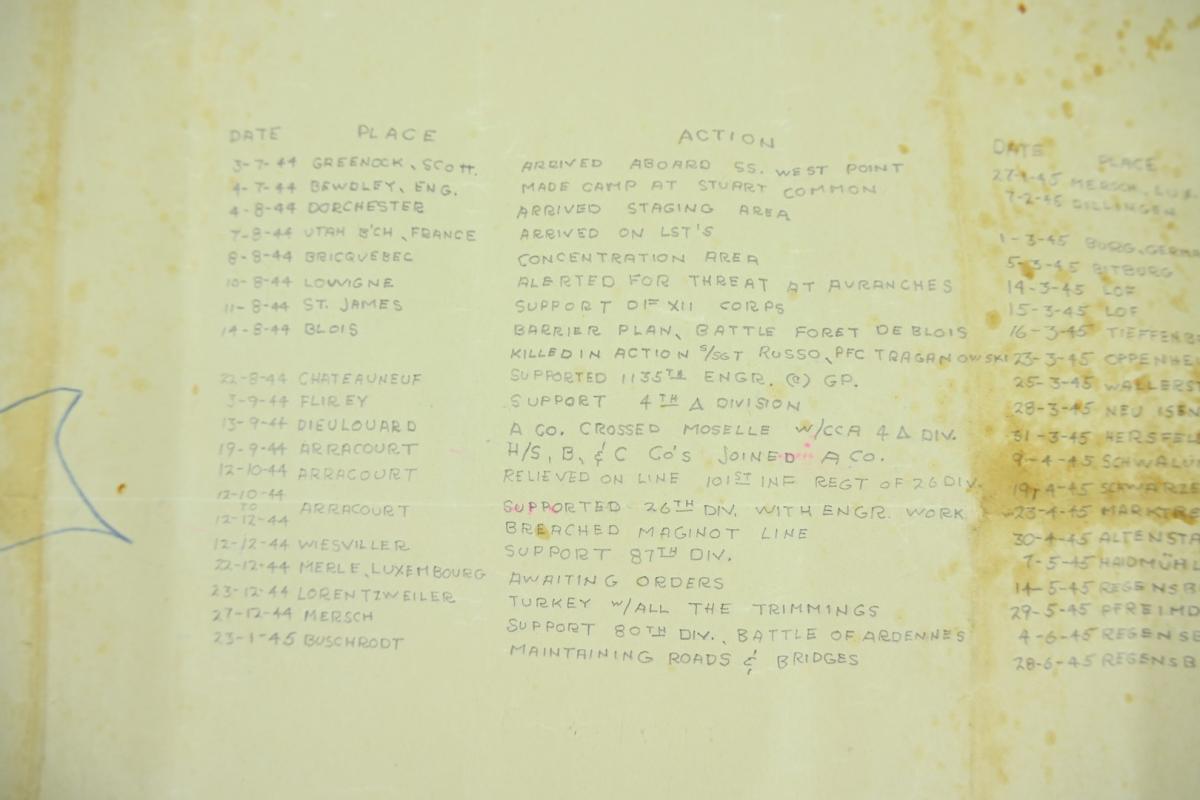 DATE PLACE ACTION
3-7-44 GREENOCK, SCOTT. ARRIVED ABOARD SS. WEST POINT
4-7-44 BEWDLEY, ENG. MADE CAMP AT STUART COMMON
4-8-44 DORCHESTER ARRIVED STAGING AREA
7-8-44 UTAH B'CH, FRANCE ARRIVED ON LST'S
8-8-44 BRICQUEBEC CONCENTRATION AREA
10-8-44 LOUVIGNE ALERTED FOR THREAT AT AVRANCHES
11-8-44 ST. JAMES SUPPORT OF XII CORPS
14-8-44 BLOIS BARRIER PLAN, BATTLE FORET DE BLOIS
KILLED IN ACTION S/SGT RUSSO, PFC TRAGANOWSKI
22-8-44 CHATEAUNEUF SUPPORTED 1135TH ENGR. (C) GP.
3-9-44 FLIREY SUPPORT 4TH Δ DIVISION
13-9-44 DIEULOUARD A CO. CROSSED MOSELLE W/CCA 4 Δ DIV.
19-9-44 ARRACOURT H/S, B, & C CO'S JOINED A CO.
12-10-44 ARRACOURT RELIEVED ON LINE 101ST INF REGT OF 26 DIV.
12-10-44
TO ARRACOURT SUPPORTED 26TH DIV. WITH ENGR. WORK
12-12-44
BREACHED MAGINOT LINE
12-12-44 WIESVILLER SUPPORT 87TH DIV.
22-12-44 MERLE, LUXEMBOURG AWAITING ORDERS
23-12-44 LORENTZWEILER TURKEY W/ALL THE TRIMMINGS
27-12-44 MERSCH SUPPORT 80TH DIV., BATTLE OF ARDENNES
23-1-45 BUSCHRODT MAINTAINING ROADS & BRIDGES
DATE PLACE
27-1-45 MERSCH, LUX
7-2-45 DILLINGEN
1-3-45 BURG, GERMA
5-3-45 BITBURG
14-3-45 LOF
15-3-45 LOF
16-3-45 TIEFFENB
23-3-45 OPPENHEI
25-3-45 WALLERST
28-3-45 NEU ISEN
31-3-45 HERSFEL
9-4-45 SCHWALU
19-4-45 SCHWARZE
23-4-45 MARKTRE
30-4-45 ALTENSTA
7-5-45 HAIDMÜHL
14-5-45 REGENSB
29-5-45 PFREIMD
4-6-45 REGENSB
28-6-45 REGENSB